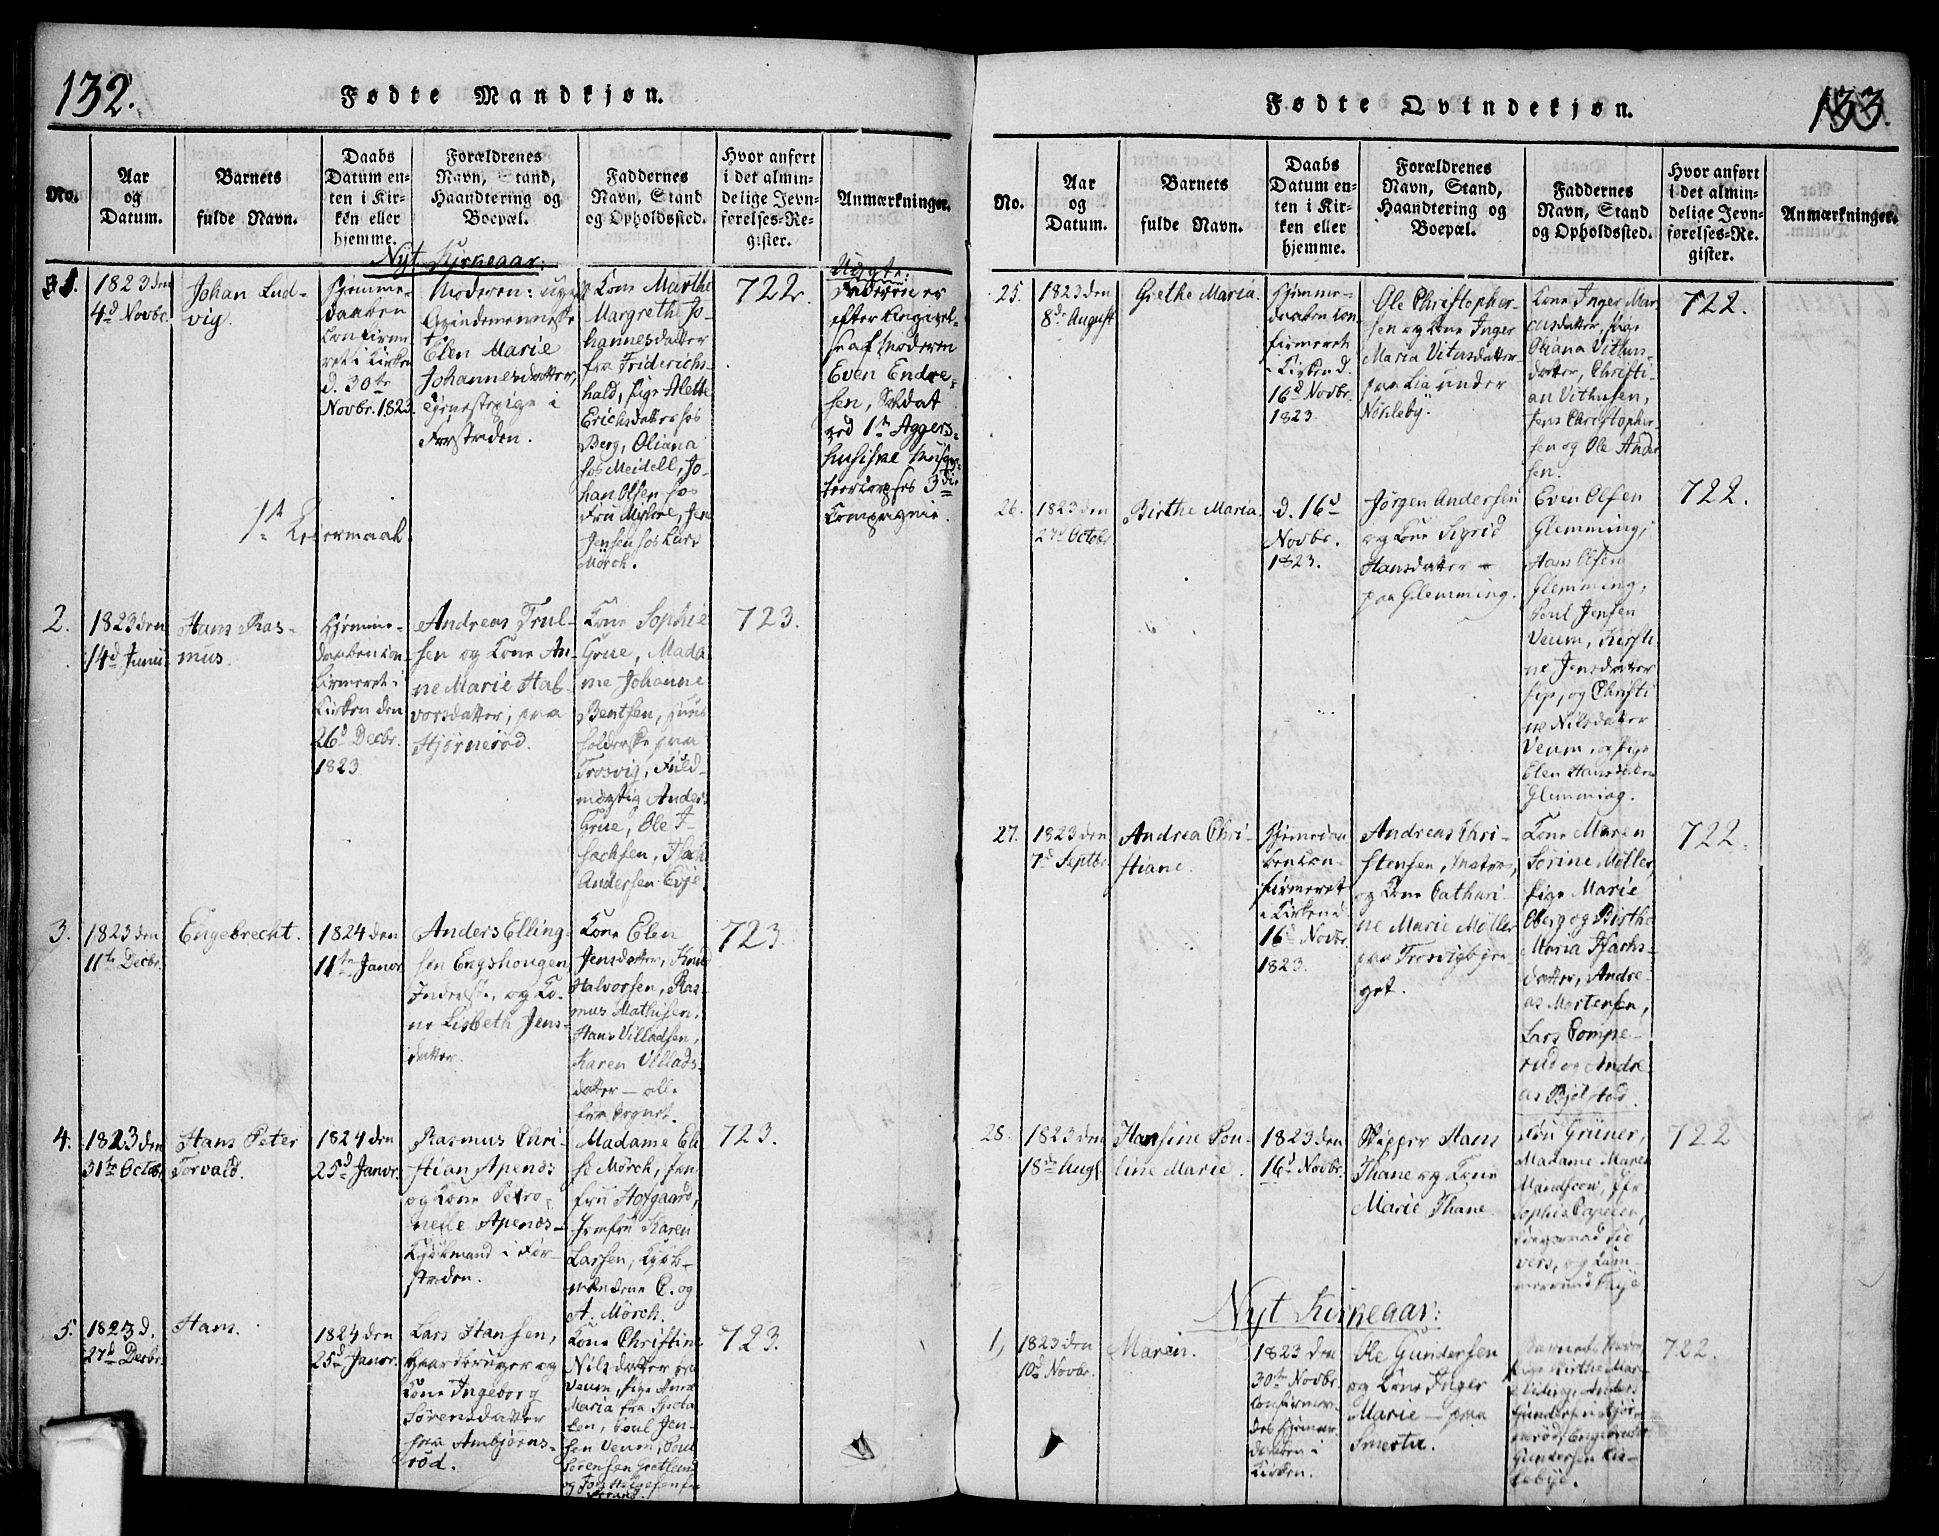 132.
Fødte Mandkjøn.
No.
Aar
og
Datum.
Barnets
fulde Navn.
Daabs
Datum en-
ten i Kir-
ken eller
hjemme.
Forældrenes
Navn, Stand,
Haandtering og
Boepæl.
Faddernes
Navn, Stand
og Opholdssted.
Hvor anført
i det almin-
delige Jevn-
førelses-Re-
gister.
Anmærkninger.
Nyt Kirkeaar:
1.
1823 den
4d Novbr.
Johan Lud-
vig.
Hjemme-
daaben
Confirme-
ret i Kirken
d. 30te
Novbr. 1823.
Moderen: ugift
Qvindemenneske
Elen Marie
Johannesdatter,
tjenestepige i
Forstaden.
Kone Marthe
Margrethe Jo-
hannesdatter
fra Friderichs-
hald, pige Alette
Erichsdatter hos
Berg, Oliana
hos Meidell, Jo-
han Olsen hos
Fru
Jensen hos Lars
Mörch.
722.
Uægte:
Faderen er
efter Angivel-
se af Moderen
Even Endre-
sen, Soldat
ved 1te Aggers-
husiske Musqve-
teercorpses 3die
Compagnie.
1te Leiermaal.
2.
1823 den
14d Junii
Hans Ras-
mus.
Hjemme-
daaben con-
firmeret i
Kirken den
26d Decbr.
1823
Andreas Trul-
sen og Kone An-
ne Marie Hal-
vorsdatter, paa
Hjørnerød.
Kone Sophie
Grue, Mada-
me Johanne
Bentsen, Huus-
holderske paa
Trosvig, Fuld-
mægtig Anders
Grue, Ole I-
sachsen, Isach
Andersen Evje.
723.
3.
1823 den
11te Decbr.
Engebrecht.
1824 den
11te Janvr.
Anders Elling-
sen Engshougen
Inderste, og Ko-
ne Lisbeth Jens-
datter.
Kone Elen
Jensdatter, Knud
Halvorsen, Ras-
mus Mathisen,
Hans Villadsen,
Karen Villads-
datter – alle
fra Sognet.
723.
4.
1823 den
31te Octbr.
Hans Peter
Torvald.
1824 den
25d Janvr.
Rasmus Chri-
stian Apenæs
og Kone Petro-
nelle Apenæs –
Kjøbmand i For-
staden.
Madame Eli-
se Mörch, Jom-
fru Hofgaard,
Jomfru Karen
Larsen, Kjøb-
mændene C. og
A. Mörch.
723.
5.
1823 d.
27d Decbr.
Hans.
1824 den
25d Janvr.
Lars Hansen,
Gaardbruger og
Kone Ingeborg
Sørensdatter
fra Ambjørns-
rød.
Kone Christine
Nilsdatter fra
Veum, pige Anne
Maria fra
Poul Jen-
sen Veum, Poul
Sørensen
og
723.
133.
Fødte Qvindekjøn.
No.
Aar
og
Datum.
Barnets
fulde Navn.
Daabs
Datum en-
ten i Kir-
ken eller
hjemme.
Forældrenes
Navn, Stand,
Haandtering og
Boepæl.
Faddernes
Navn, Stand
og Opholdssted.
Hvor anført
i det almin-
delige Jevn-
førelses-Re-
gister.
Anmærkninger.
25.
1823 den
8de August
Grethe Maria.
Hjemme-
daaben con-
firmeret
i Kirken d.
16d Novbr.
1823.
Ole Christopher-
sen og Kone Inger
Maria Vitusdatter
paa Lia under
Nørleby.
Kone Inger Mar-
cusdatter, pige
Oliana Vithus-
datter, Christi-
an Vithusen,
Jens Christopher-
sen og Ole Ander-
sen.
722.
26.
1823 den
27d Octobr.
Birthe Maria.
d. 16d
Novbr.
1823.
Jørgen Andersen
og Kone Sigrid
Hansdatter –
paa Glemming.
Even Olsen
Glemming,
Hans Olsen
Glemming,
Poul Jensen
Veum, Kersti-
ne Jensdatter
og Christi-
ne Nilsdatter
Veum, og pige
Elen Hansdatter
Glemming.
722.
27.
1823 den
7d Septbr.
Andrea Chri-
stiane.
Hjemmedaa-
ben con-
firmeret
i Kirken d.
16d Novbr.
1823.
Andreas Chri-
stensen, Matros,
og Kone Cathari-
ne Marie Møller
paa Trosvigbjer-
get.
Kone Maren
Sørine Møller,
pige Marie
Eberg og Birthe
Maria Isachs-
datter, Andre-
as Mortensen,
Lars Pompe-
rud og Andre-
as Bjølstad.
722.
28.
1823 den
18de Aug.
Hansine Pou-
line Marie.
1823 den
16d Novbr.
Skipper Hans
Thane og Kone
Marie Thane
Fru Grüner,
Madame Maren
Sophie
og
722
Nyt Kirkeaar:
1,
1823 den
10d Novbr.
Maren.
1823 den
30te Novbr.
confirmer-
des Hjemme-
daaben i
Kirken.
Ole Gundersen
og Kone Inger
Marie – paa
Smertu.
pige Birthe Mar-
Anders
Gundersen
Gundersen
722.